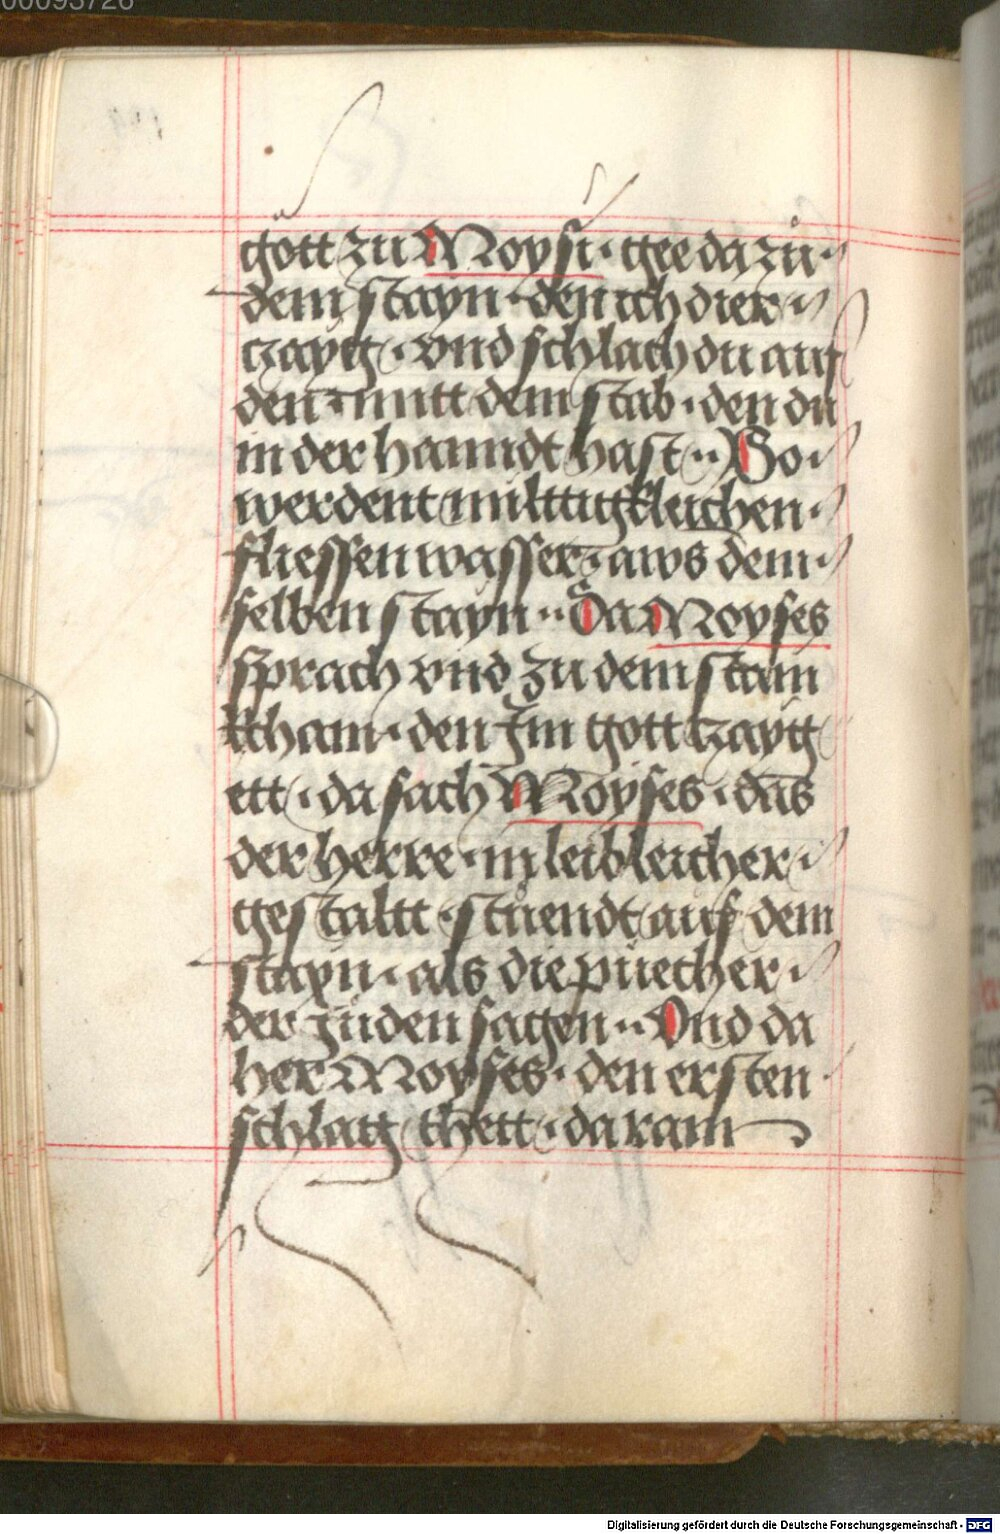 00093726
gott zu Moysi · gee da zů ·
dem stayn · den ich dier ·
tzayg · vnd schlach du auf
den mitt dem stab · den du
in der hanndt hast ·· So ·
werdent milttigkleichen ·
fliessen wasser aws dem ·
selben stayn ·· Da Moyses
sprach vnd zu dem stain
kcham · den Im gott tzayg
ett · da sach Moyses · das
der herre · in leibleicher ·
gestaltt · stůendt auf dem
stayn · als die püecher ·
der Juden sagen ·· Vnd da
her Moyses · den ersten
schlag thett · da kam
Digitalisierung gefördert durch die Deutsche Forschungsgemeinschaft - DFG